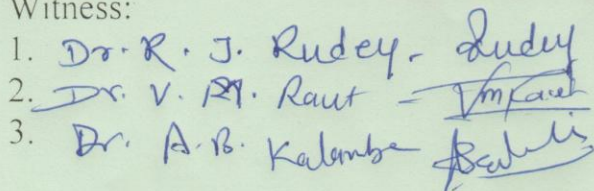 Witness:
1. Dr. R. J. Rudey. Rudey
2. Dr. V. M. Raut - VmRaut
3. Dr. A. B. Kalambe